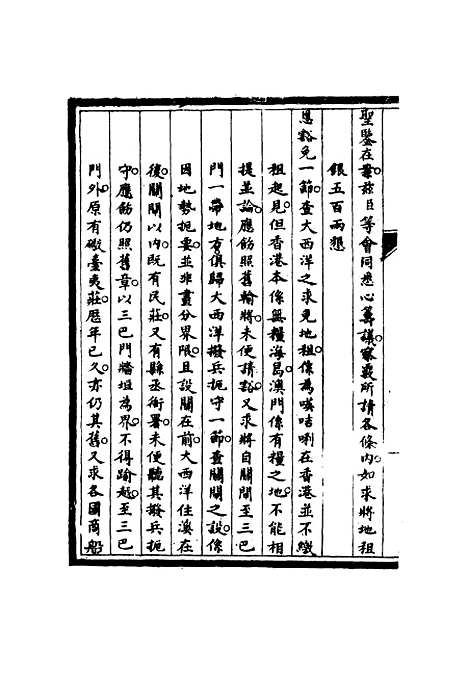 聖鑒在案茲臣等會同悉心籌議察覈所請各條內如求將地租
銀五百兩懇
恩豁免一節查大西洋之求免地租係為㗎咭唎在香港並不繳
租起見但香港本係無糧海島澳門係有糧之地不能相
提並論應飭照舊輸將未便請豁又求將自關閘至三巴
門一帶地方俱歸大西洋撥兵扼守一節查關閘之設係
因地勢扼要並非畫分界限且設關在前大西洋住澳在
後關閘以內既有民莊又有縣丞衙署未便聽其撥兵扼
守應飭仍照舊章以三巴門牆垣為界不得踰越至三巴
門外原有礮臺夷莊歷年已久亦仍其舊又求各國商船